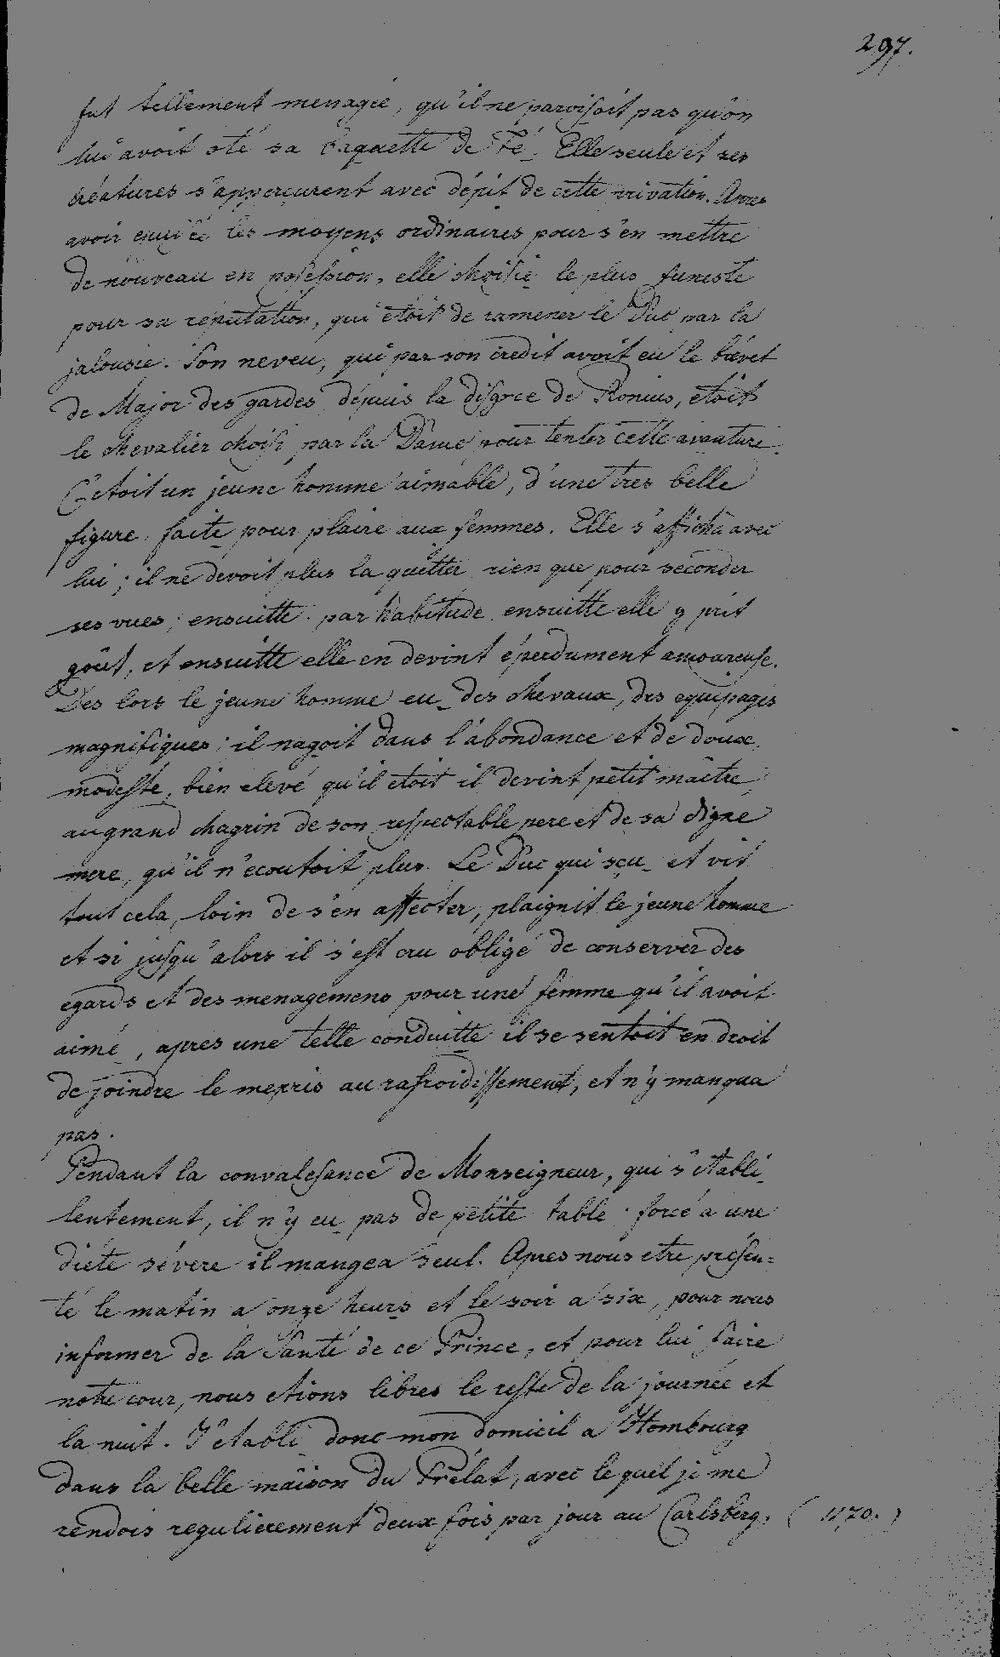 297.
fut tellement menagée, qu'il ne paroisoit pas qu'on
lui avoit oté sa baguette de Fé. Elle seule et ses
créatures s'apperçurent avec dépit de cette privation. Apres
avoir epuisé les moyens ordinaires pour s'en mettre
de nouveau en possession, elle choisit le plus funeste
pour sa réputation, qui étoit de ramener le Duc par la
jalousie. Son neveu, qui par son credit avoit eu le brevet
de Major des gardes dépuis la disgrace de Ronius, étoit
le chevalier choisi par la Dame pour tenter cette avanture.
C'etoit un jeune homme aimable, d'une tres belle
figure faite pour plaire aux femmes. Elle s'afficha avec
lui; il ne devoit plus la quitter rien que pour seconder
ses vues; ensuitte par habitude ensuitte elle y prit
goût, et ensuitte elle en devint éperdument amoureuse.
Des lors le jeune homme eu des chevaux, des equipages
magnifiques; il nagoit dans l'abondance et de doux,
modeste, bien elevé qu'il etoit il devint petit maître,
au grand chagrin de son respectable pere et de sa digne
mere, qu'il n'ecoutoit plus. Le Duc qui sçu et vit
tout cela, loin de s'en affecter, plaignit le jeune homme
et si jusqu'alors il s'est cru obligé de conserver des
egards et des menagemens pour une femme qu'il avoit
aimé, apres une telle conduitte il se sentoit en droit
de joindre le mepris au rafroidissement, et n'y manqua
pas.
Pendant la convalesance de Monseigneur, qui s'établi
lentement, il n'y eu pas de petite table. forcé a une
diéte sévere il mangea seul. Apres nous etre présen-
té le matin a onze heurs et le soir a six, pour nous
informer de la Santé de ce Prince, et pour lui faire
notre cour, nous etions libres le reste de la journée et
la nuit. J'etabli donc mon domicil a Hombourg
dans la belle maison du Prélat, avec le quel je me
rendois regulierement deux fois par jour au Carlsberg. (1170.)